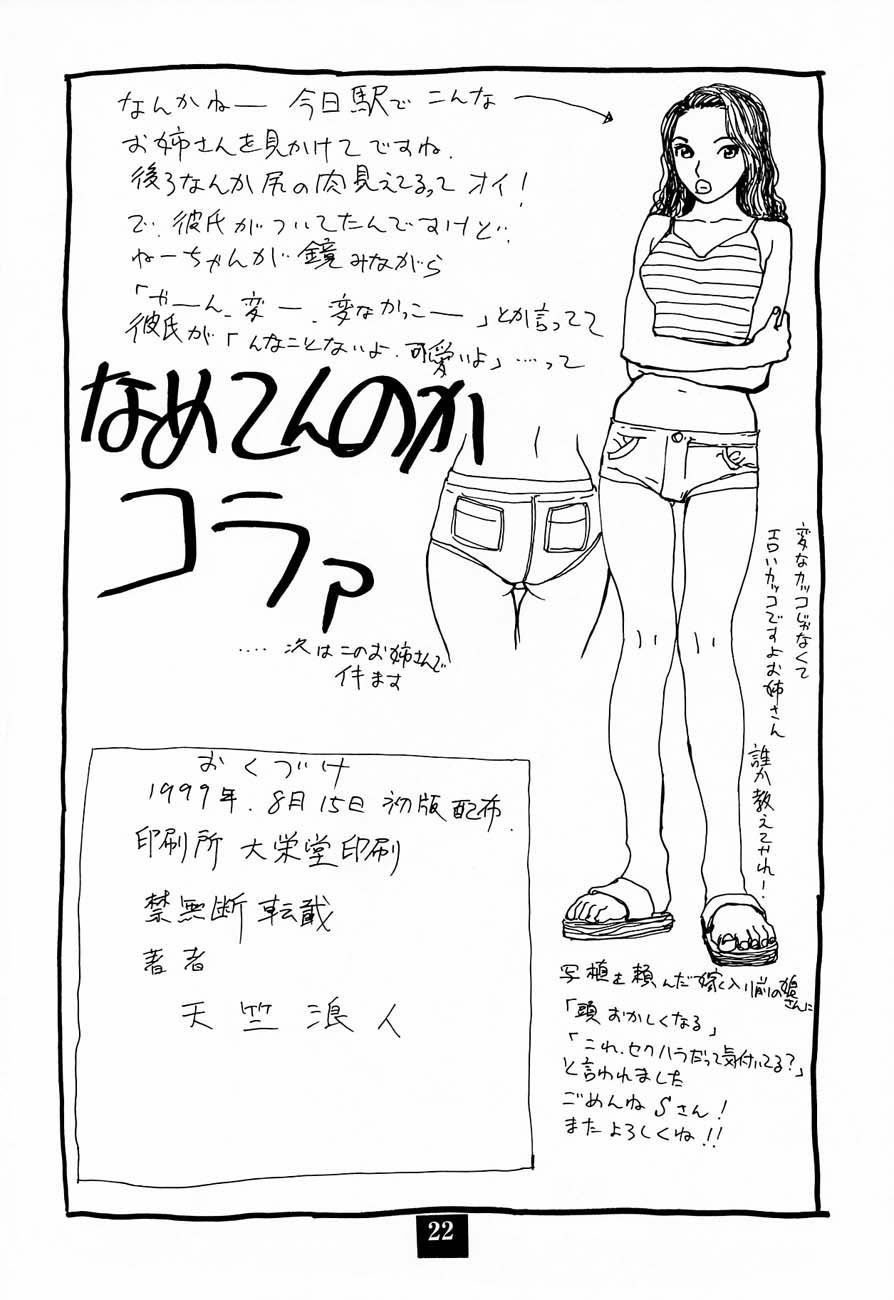 なんかねー 今日駅で こんな
お姉さんを見かけてですね、
後ろなんか尻の肉見えてるって オイ!
で、彼氏がついてたんですけど、
ねーちゃんが 鏡みながら
「やーん、変ー、変なかっこー」とか言ってて
彼氏が「んなことないよ、可愛いよ」…って
なめてんのか
コラァ
‥‥次はこのお姉さんで
イキます
変なカッコじゃなくて
エロいカッコですよお姉さん
誰か教えてやれ!
おくづけ
1999年.8月15日 初版配布.
印刷所 大栄堂印刷
禁無断転載
著者
天竺浪人
写植を頼んだ嫁入り前の娘さんに
「頭おかしくなる」
「これ、セクハラだって気付いてる?」
と言われました
ごめんね Sさん!
またよろしくね!!
22